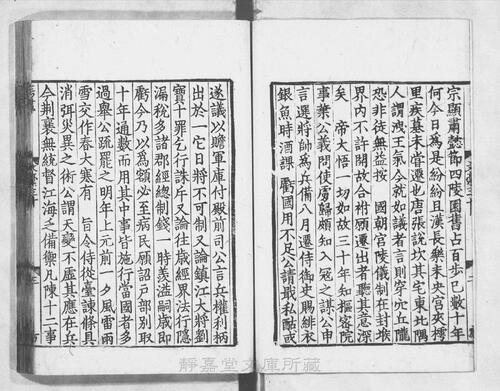 宗顯肅懿節四陵園舊占百歩已數十年
何今日爲是紛紛且漢長樂未央宫夾樗
里疾墓未嘗遷也唐張說坎其宅東北隅
人謂洩王氣令就如議者言則穿穴丘隴
恐非徒無益按 國朝宫陵儀制在封搉
界内不許開故合祔願遷出者聽其意深
矣 帝大悟一切如故三十年知樞密院
事葉公義問使虜歸頗知入冦之謀公申
言選將帥爲兵備八月遷侍御史賜緋衣
銀魚時酒課 虧國用不足公請戢私酤或
遂議以贍軍庫付殿前司公言兵權利柄
出於一它日將不可制又論鎮江大將劉
寶十罪乞行誅斥又論往歳經界法行隱
漏稅多諸郡經總制錢一時羨溢嗣歳即
虧今乃以爲額必至病民願詔戸部别取
十年通數而用其中事皆施行當國者多
過舉公疏罷之明年上元前一夕風雷雨
雪交作春大寒有 旨令侍從臺諫條具
消弭災異之術公謂天變不虚其應在兵
今荆襄無統督江海乏備禦凡陳十二事
靜嘉堂文庫所藏